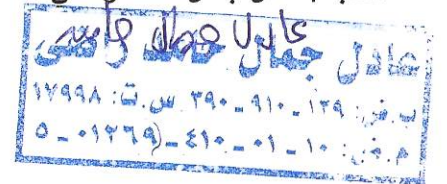 عادل جمال
عادل جمال
ب.ض: ١٢٩ - ٩١٠ - ٣٩٠ س.ت: ١٧٩٩٨
م.ض: ١٠ - ٠١ - ٤١٠ - ٠١٢٦٩ - ٥